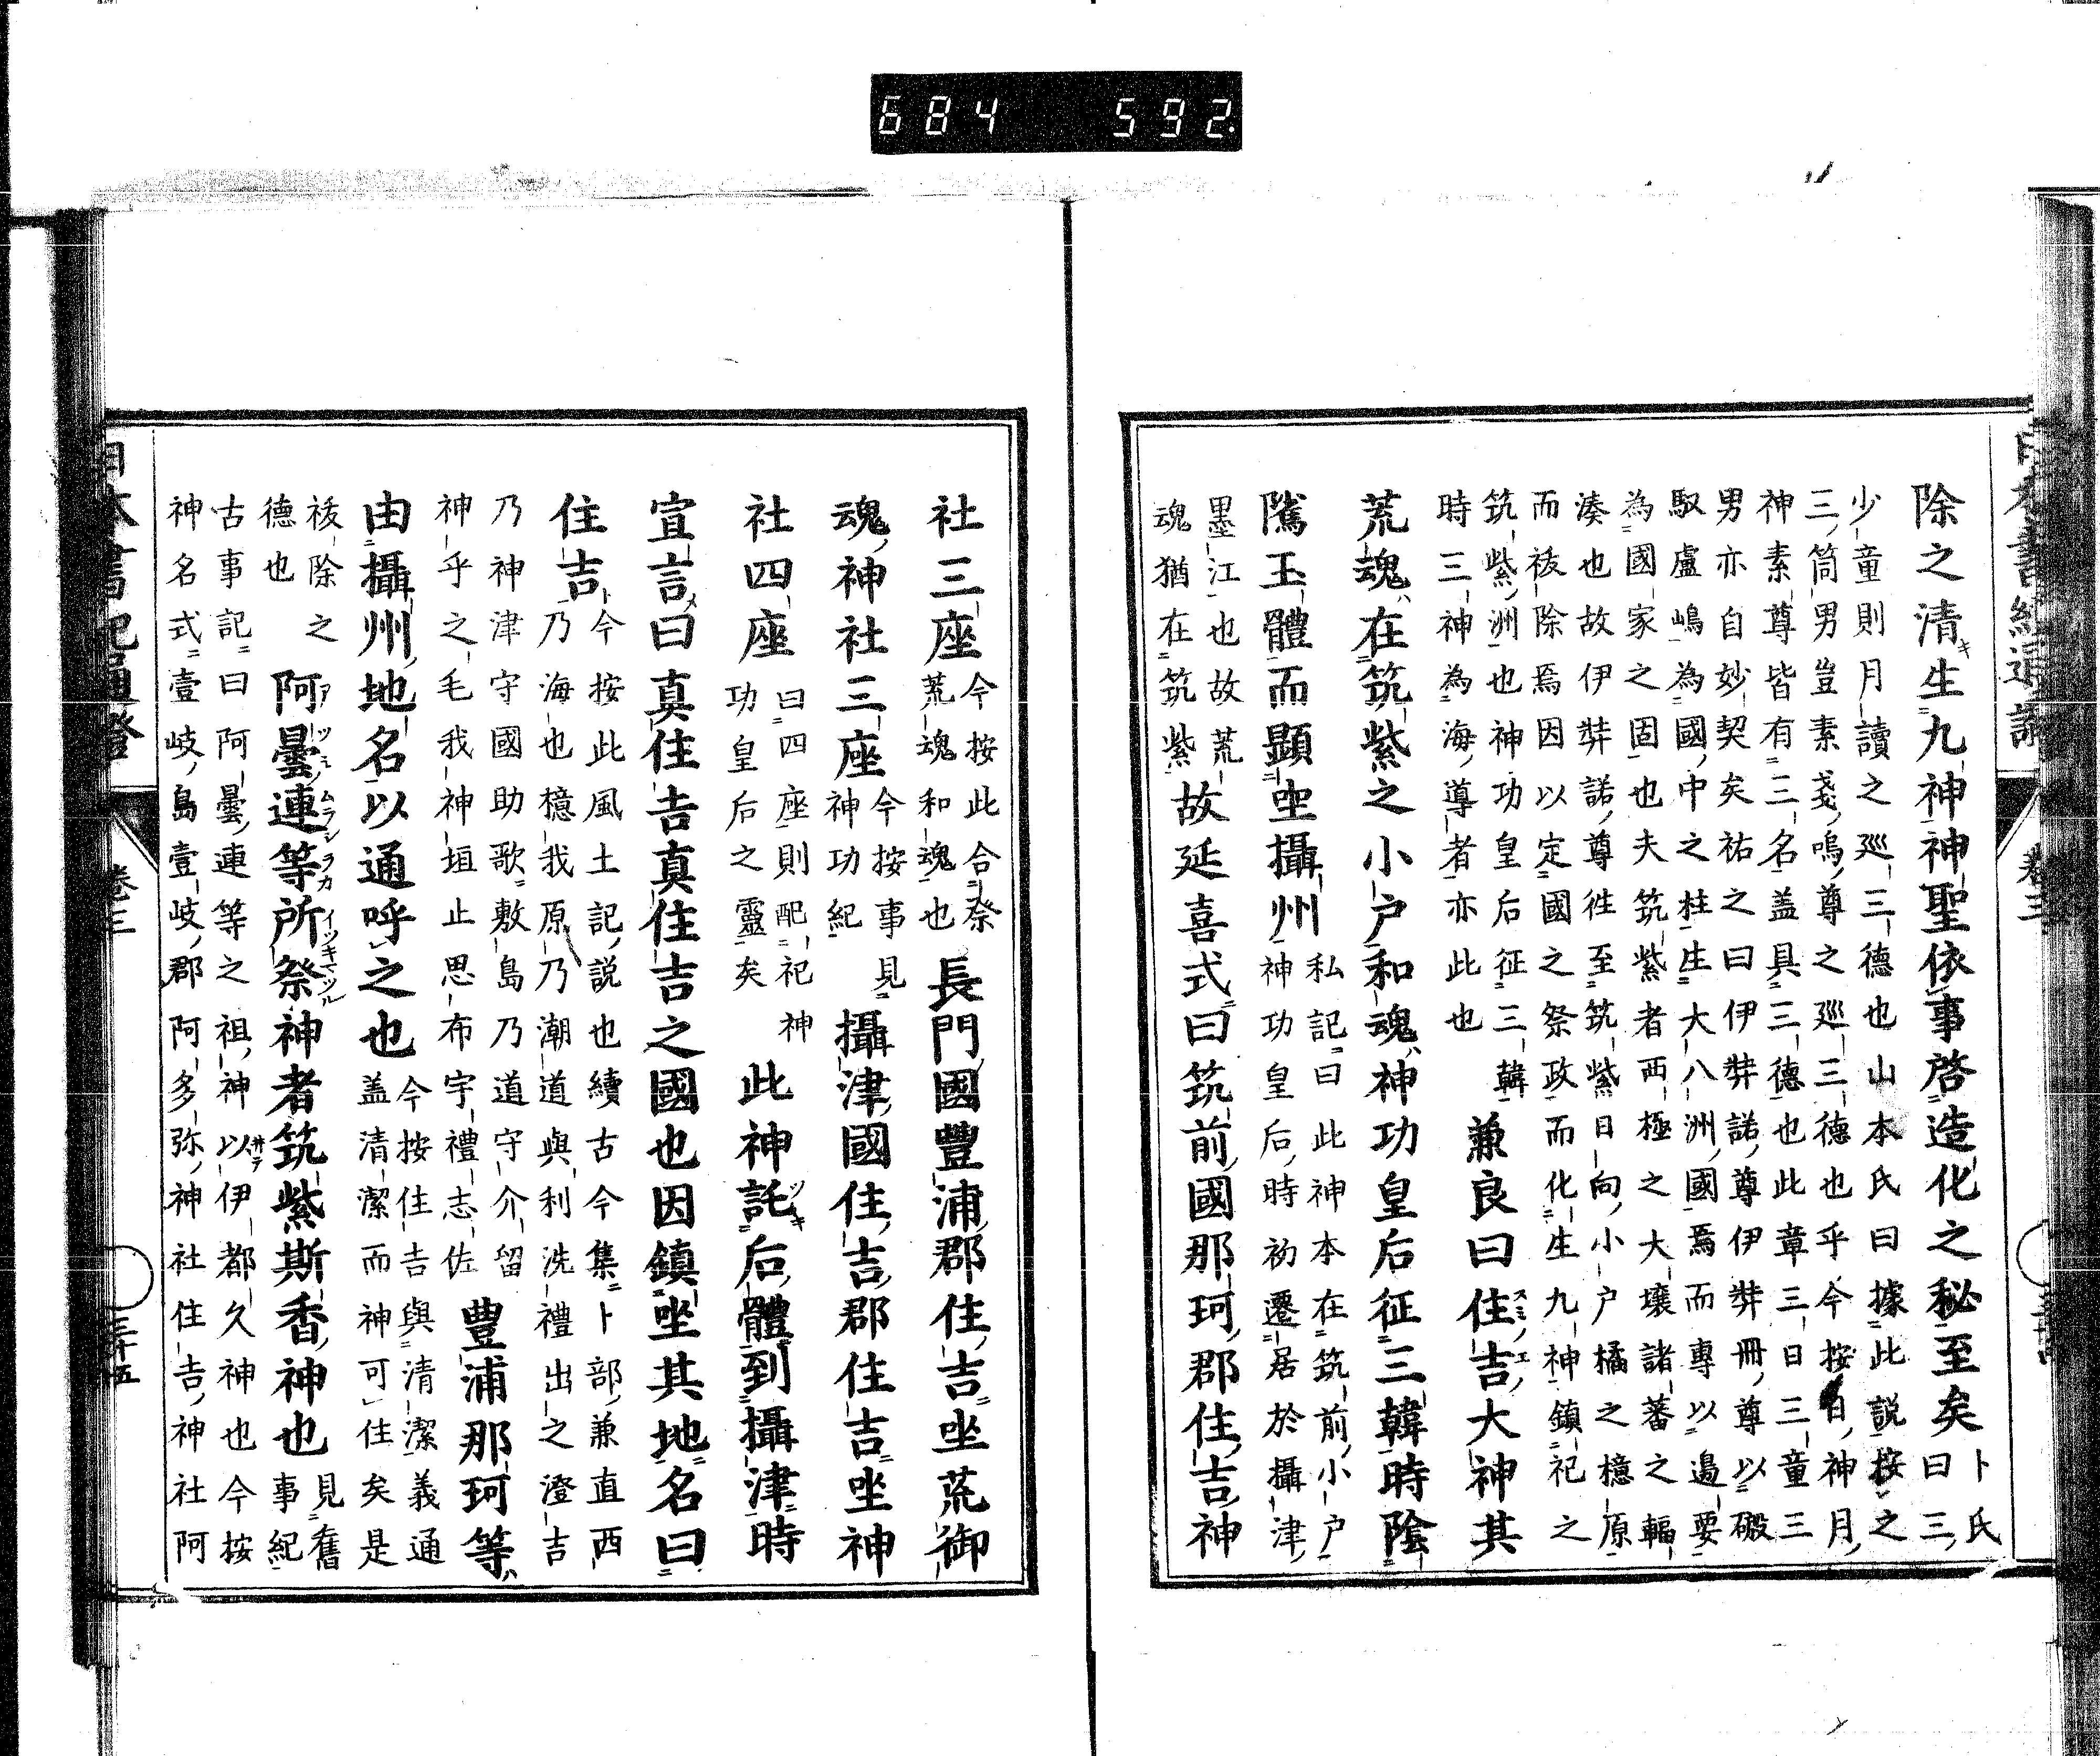 除之清生九神神聖依事啓造化之秘至矣卜氏
曰三
少童則月讀之廵三德也山本氏曰據此説按之
三筒男豈素戔嗚尊之廵三德也乎今按日神月
神素尊皆有三名盖具三德也此章三曰三童三
男亦自妙契矣祐之曰伊弉諾尊伊弉冊尊以磤
馭盧嶋為國中之柱生大八洲國焉而專以邊要
為國家之固也夫筑紫者西極之大壤諸蕃之輻
湊也故伊弉諾尊徃至筑紫日向小户橘之檍原
而祓除焉因以定國之祭政而化生九神鎮祀之
筑紫洲也神功皇后征三韓
時三神為海導者亦此也
兼良曰住吉大神其
荒魂在筑紫之小户和魂神功皇后征三韓時陰
隲玉體而顕坐攝州
私記曰此神本在筑前小户
神功皇后時初遷居於攝津
墨江也故荒
魂猶在筑紫
故延喜式曰筑前國那珂郡住吉神
社三座
今按此合祭
荒魂和魂也
長門國豐浦郡住吉坐荒御
魂神社三座
今按事見
神功紀
攝津國住吉郡住吉坐神
社四座
曰四座則配祀神
功皇后之靈矣
此神託后體到攝津時
宣言曰真住吉真住吉之國也因鎮坐其地名曰
住吉
今按此風土記説也續古今集卜部兼直西
乃海也檍我原乃潮道與利洗禮出之澄吉
乃神津守國助歌敷島乃道守介留
神乎之毛我神垣止思布宇禮志佐
豊浦那珂等
由攝州地名以通呼之也
今按住吉與清潔義通
盖清潔而神可住矣是
祓除之
德也
阿曇連等所祭神者筑紫斯香神也
見舊
事紀
古事記曰阿曇連等之祖神以伊都久神也今按
神名式壹岐島壹岐郡阿多弥神社住吉神社阿
日本書紀通證
卷三
三十五